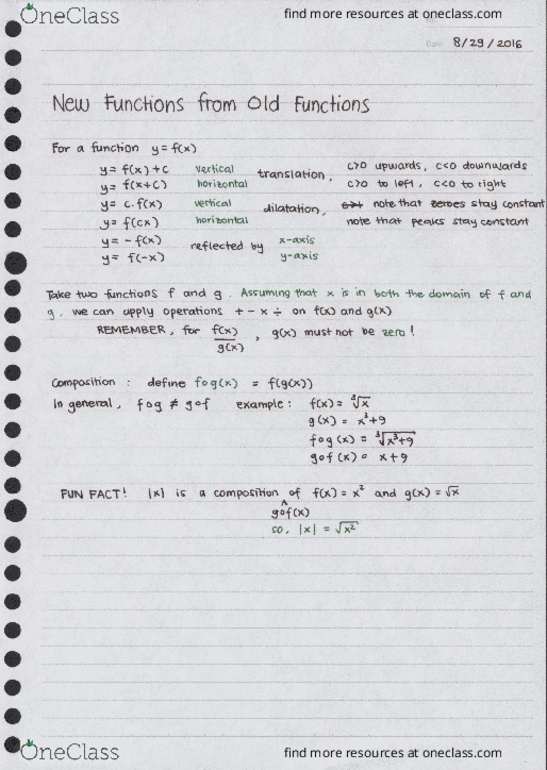 OneClass
find more resources at oneclass.com
Date 8/29/2016
New Functions from Old Functions
For a function y=f(x)
y= f(x)+c vertical translation, c>0 upwards, c<0 downwards
y= f(x+c) horizontal c>0 to left, c<0 to right
y= c.f(x) vertical dilatation, note that zeroes stay constant
y= f(cx) horizontal note that peaks stay constant
y= -f(x) reflected by x-axis
y= f(-x) y-axis
Take two functions f and g. Assuming that x is in both the domain of f and
g. we can apply operations + - × ÷ on f(x) and g(x)
REMEMBER, for f(x)/g(x), g(x) must not be zero!
Composition: define fog(x) = f(g(x))
In general, fog ≠ gof example: f(x)= ∛x
g(x) = x³+9
fog(x) = ∛(x³+9)
gof(x) = x+9
FUN FACT! |x| is a composition of f(x)=x² and g(x)=√x
^
gof(x)
so, |x| = √x²
OneClass
find more resources at oneclass.com